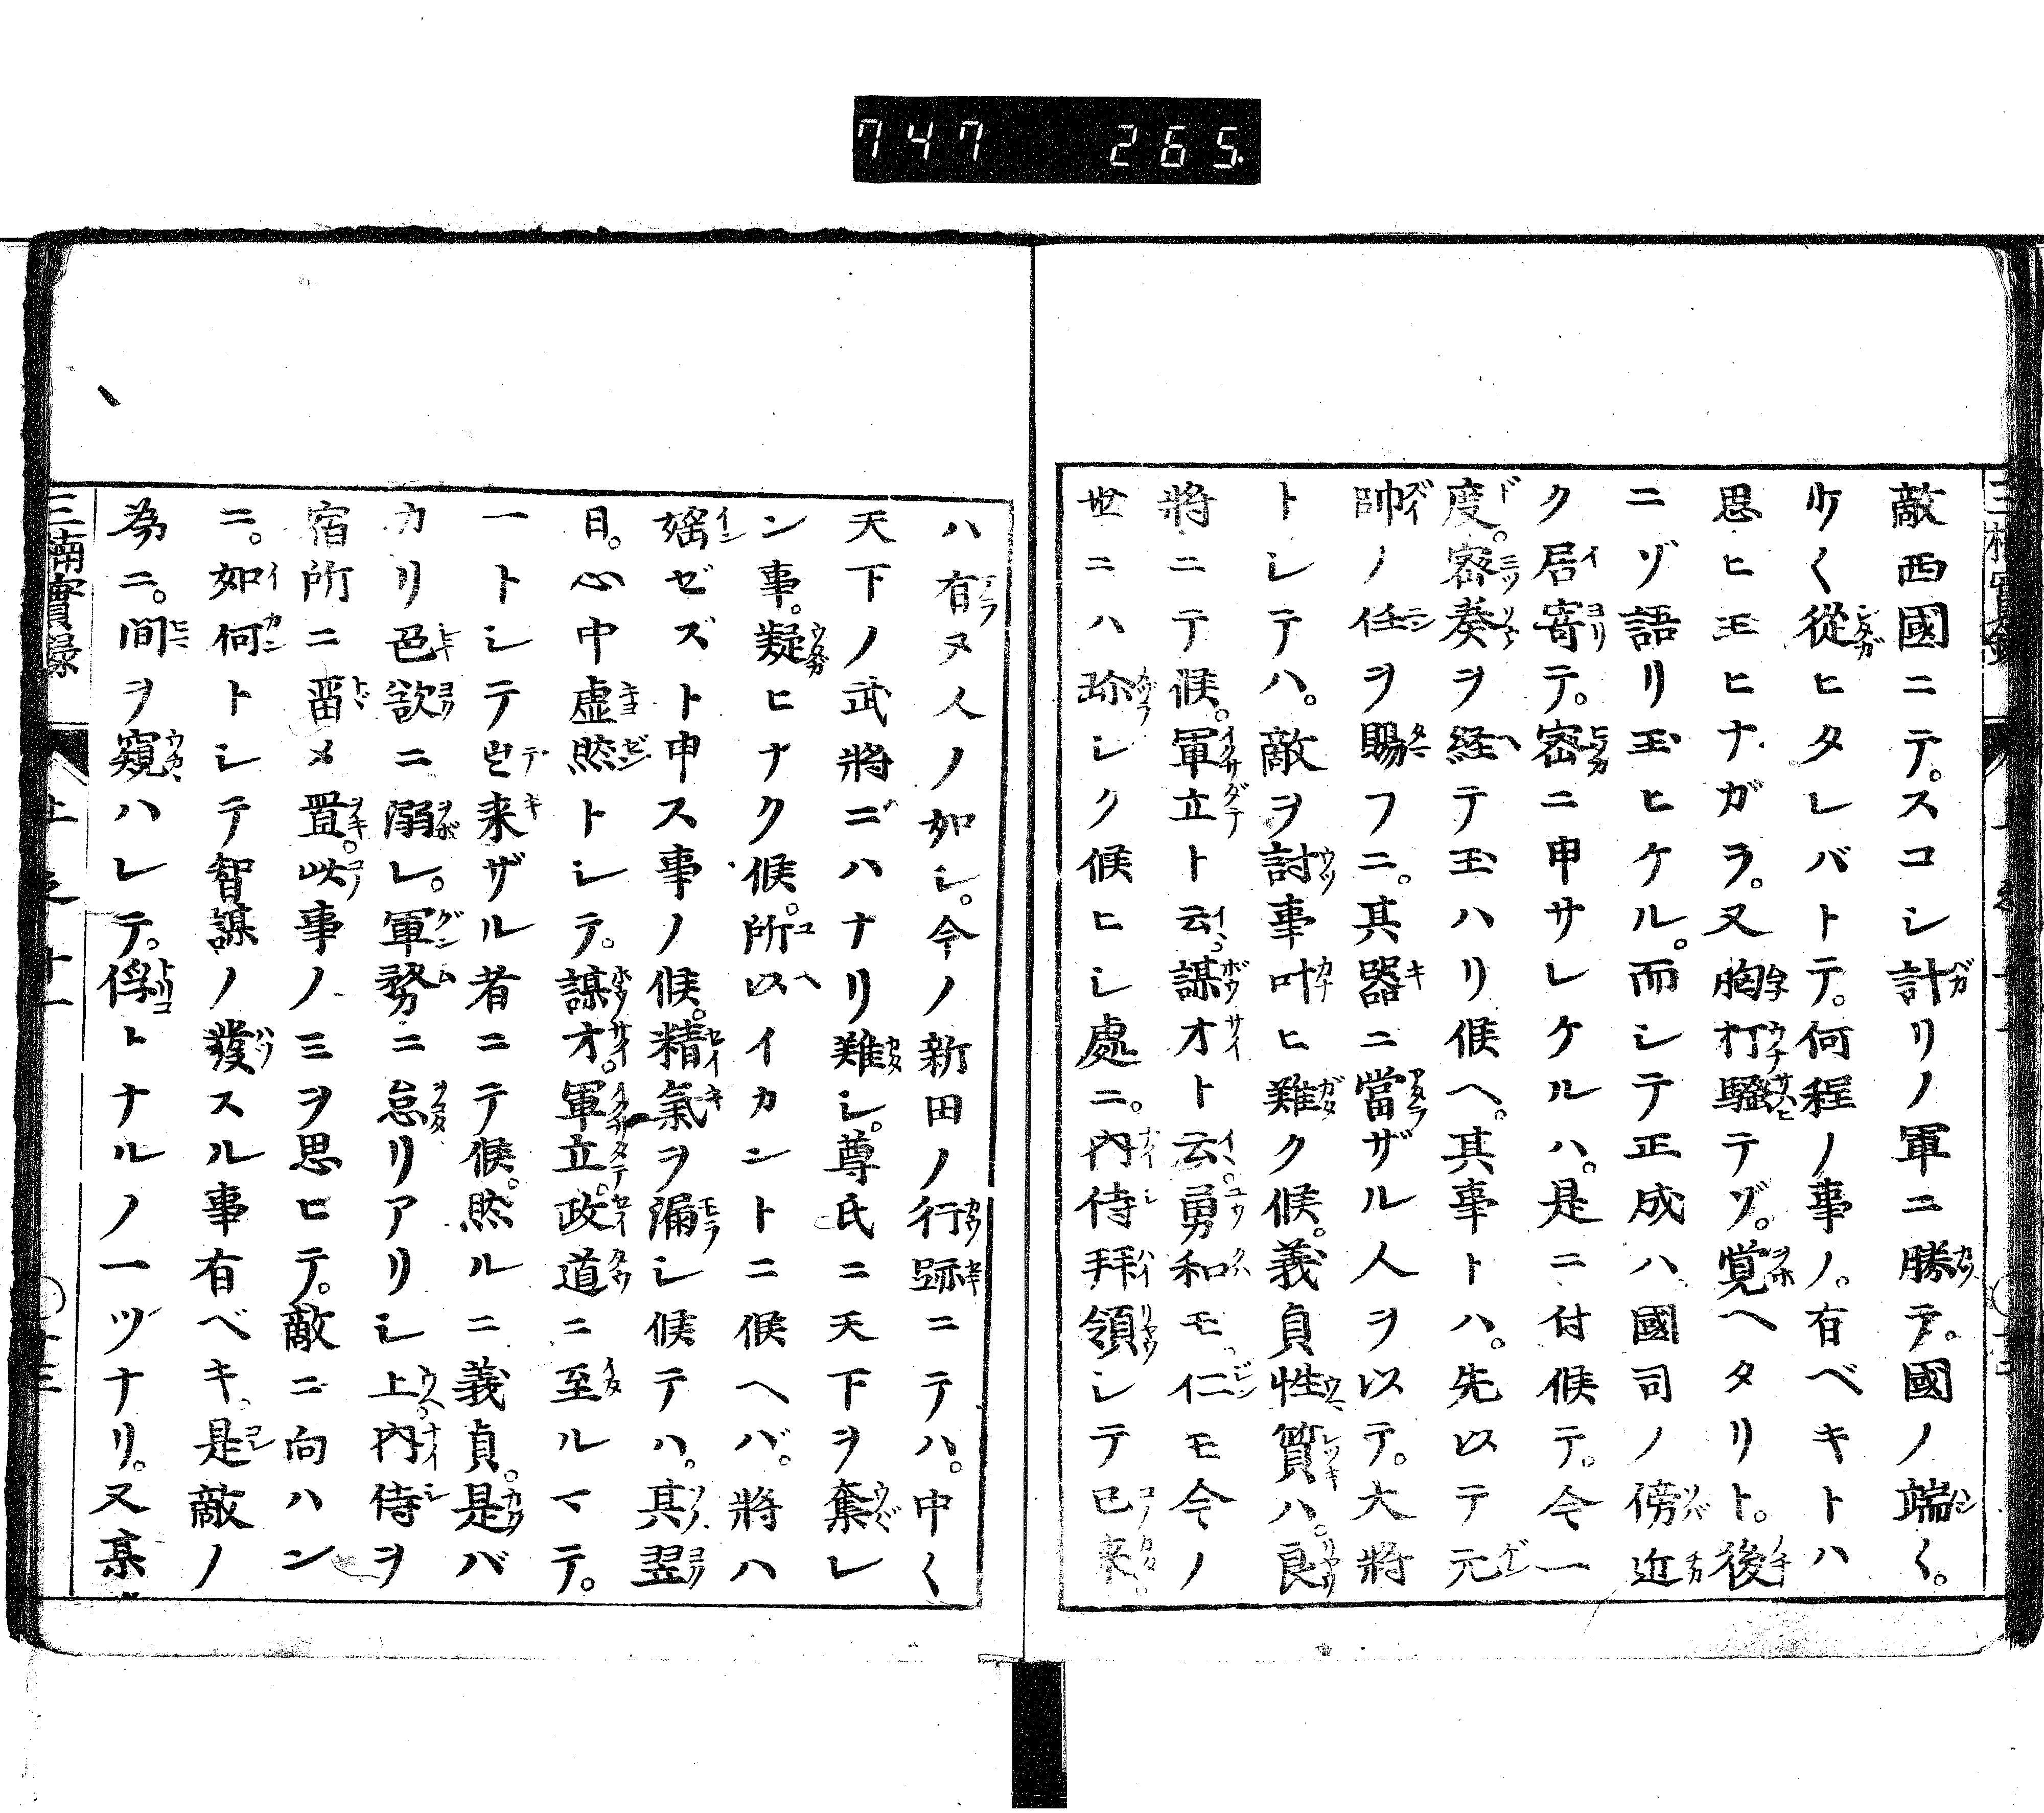 747 265
敵西國ニテ。スコシ計リノ軍ニ勝テ。國ノ端〱。
少〱從ヒタレバトテ。何程ノ事ノ。有ベキトハ
思ヒ玉ヒナガラ。又胸打騷テゾ。覚ヘタリト。後
ニゾ語リ玉ヒケル。而シテ正成ハ。國司ノ傍近
ク居寄テ。密ニ申サレケルハ。是ニ付候テ。今一
度。密奏ヲ経テ玉ハリ候ヘ。其事トハ。先以テ元
帥ノ任ヲ賜フニ。其器ニ當ザル人ヲ以テ。大將
トシテハ。敵ヲ討事叶ヒ難ク候。義貞性質ハ。良
將ニテ候。軍立ト云。謀才ト云。勇和モ。仁モ今ノ
世ニハ珎シク候ヒシ處ニ。內侍拜領シテ已来。
ハ有ヌ人ノ如シ。今ノ新田ノ行跡ニテハ。中〱
天下ノ武將ニハナリ難シ。尊氏ニ天下ヲ奪レ
ン事。疑ヒナク候。所以イカントニ候ヘバ。將ハ
婬ゼズト申ス事ノ候。精氣ヲ漏シ候テハ。其翌
日。心中虚然トシテ。謀才。軍立。政道ニ至ルマテ。
一トシテ出来ザル者ニテ候。然ルニ義貞。是バ
カリ色欲ニ溺レ。軍務ニ怠リアリシ上。內侍ヲ
宿所ニ畱メ置。此事ノミヲ思ヒテ。敵ニ向ハン
ニ。如何トシテ智謀ノ發スル事有ベキ。是敵ノ
為ニ。間ヲ窺ハレテ。俘トナルノ一ツナリ。又某
三楠實録
上之十一
十三